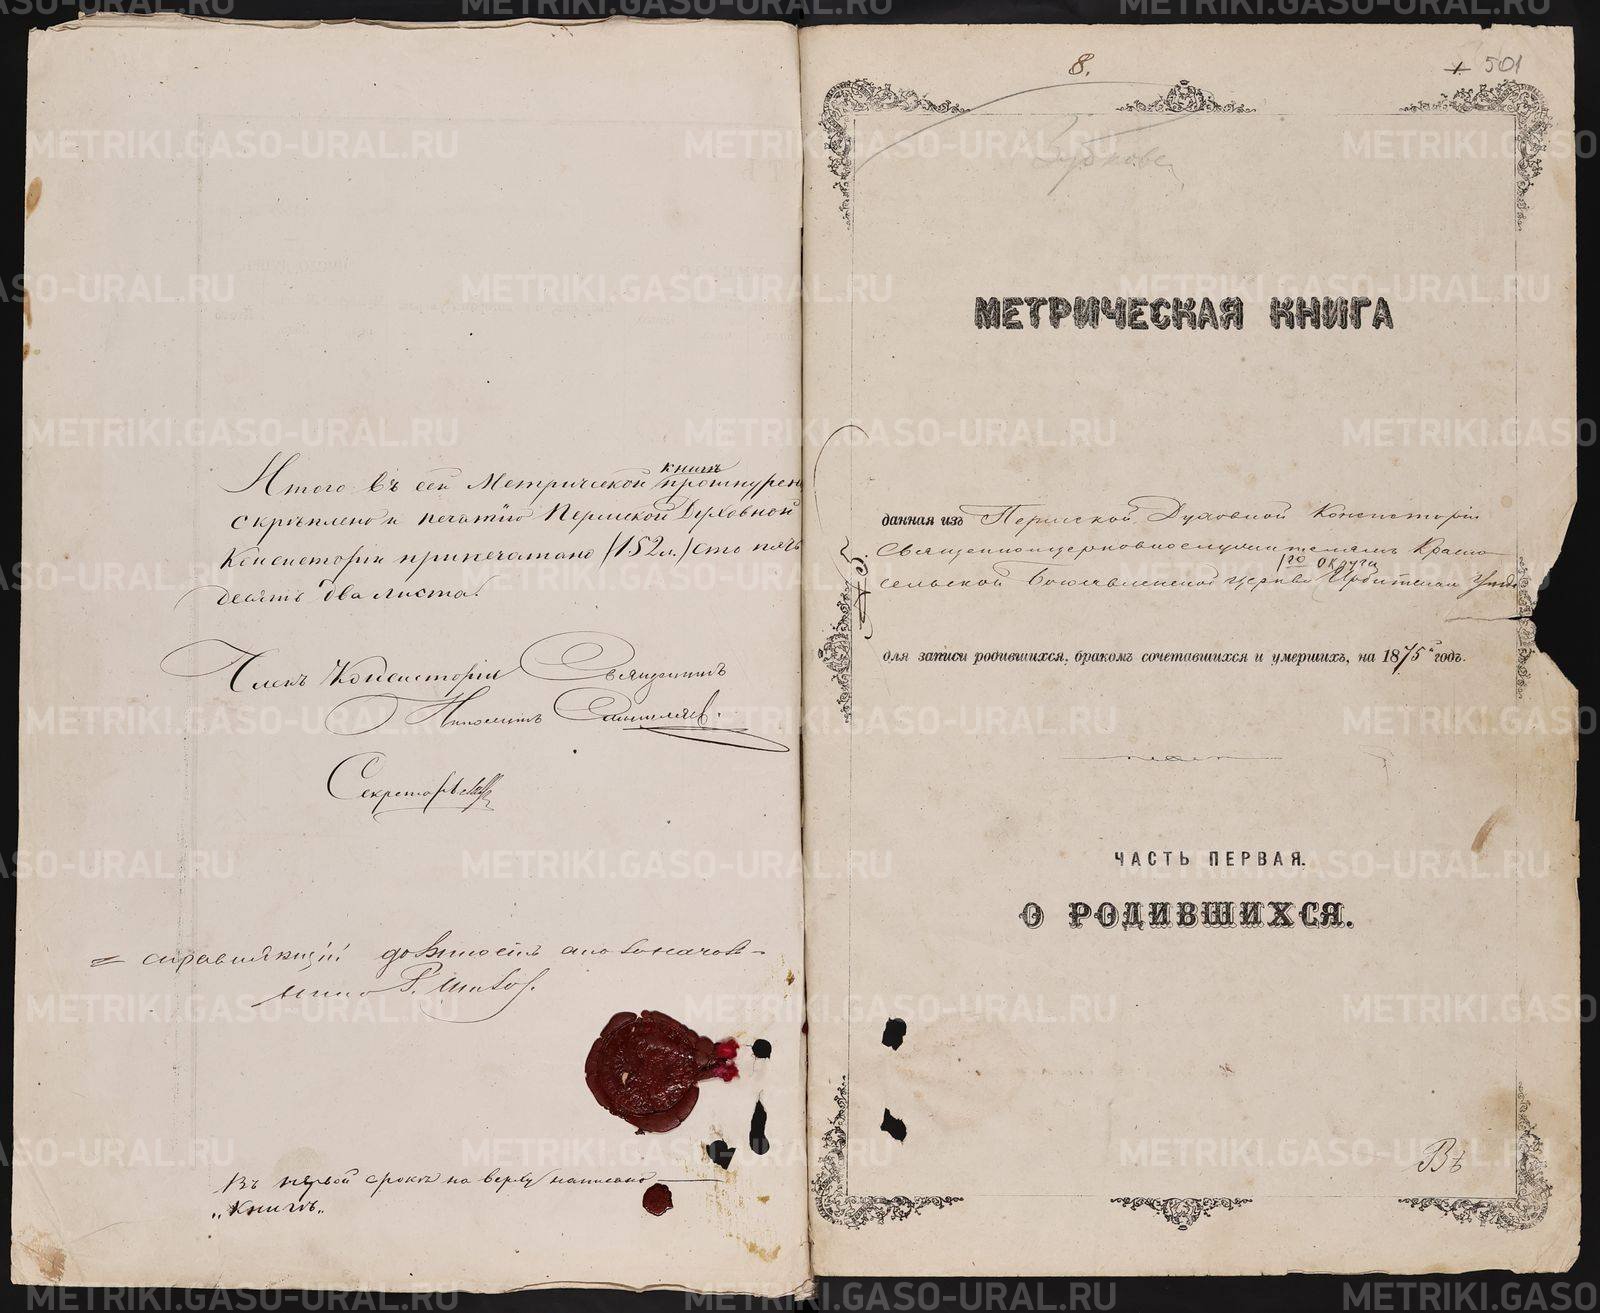 Итого въ сей Метрической книгѣ прошнурено
скрѣплено и печатью Пермской Духовной
Консисторіи припечатано (152 л.) сто пять
десятъ два листа.
Членъ Консисторіи Священникъ
Секретарь
исправляющій должность столоначаль-
ника
Въ первой строкѣ на верху написано
„книгѣ„
8.
1. 501
МЕТРИЧЕСКАЯ КНИГА
данная изъ Пермской Духовной Консисторіи
Священноцерковнослужителямъ Красно-
1го округа
сельской Богоявленской церкви Ирбитскаго уѣзда
для записи родившихся, бракомъ сочетавшихся и умершихъ, на 1875й годъ.
ЧАСТЬ ПЕРВАЯ.
О РОДИВШИХСЯ.
Въ
METRIKI.GASO-URAL.RU